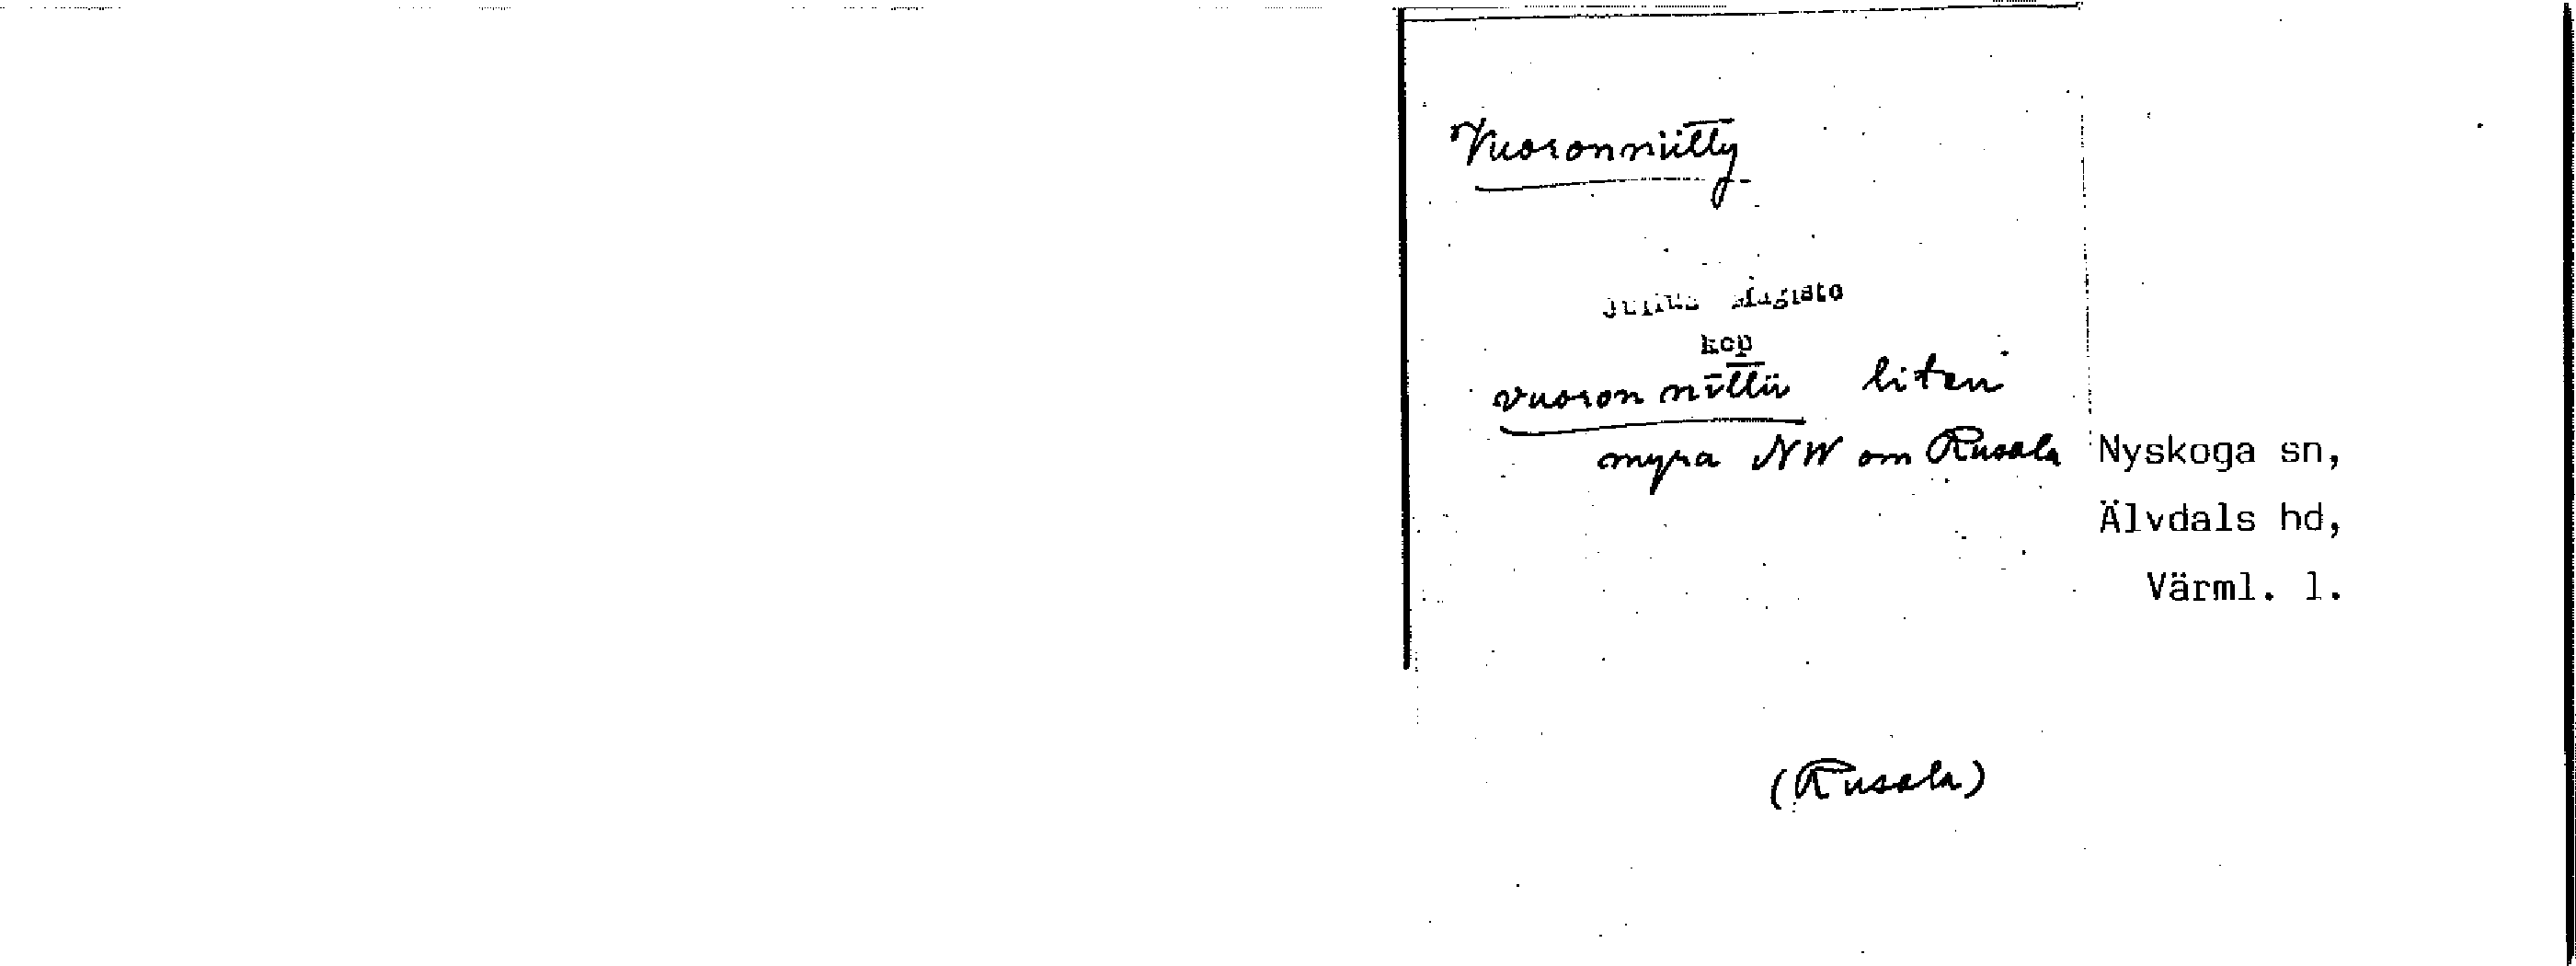 Vuoronniitty
Julius Mägiste
kop
vuoron nīttü liten
myra NW om Rusala Nyskoga sn,
Älvdals hd,
Värml. l.
(Rusala)